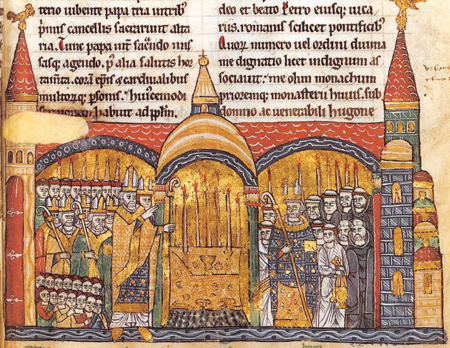 terio iubente papa tria in tribꝰ
p̄mis cancellis sacrarunt alta
ria. Tunc papa int̄ sac̄ndū mis
sas agendo, p̄ alia salutis hor
tam̄ta. corā ep̄is & cardinalibus
multorꝙ p̄sonis. huiꝰcemodi
habuit ad pl̄m.
deo et beato Petro eiusq; uica
riis. romanis scilicet pontificib;
Quorꝝ numero uel ordini diuina
me dignatio licet indignum as
sociauit. me olim monachum
prioremq; monasterii huius. sub
domno ac uenerabili hugone